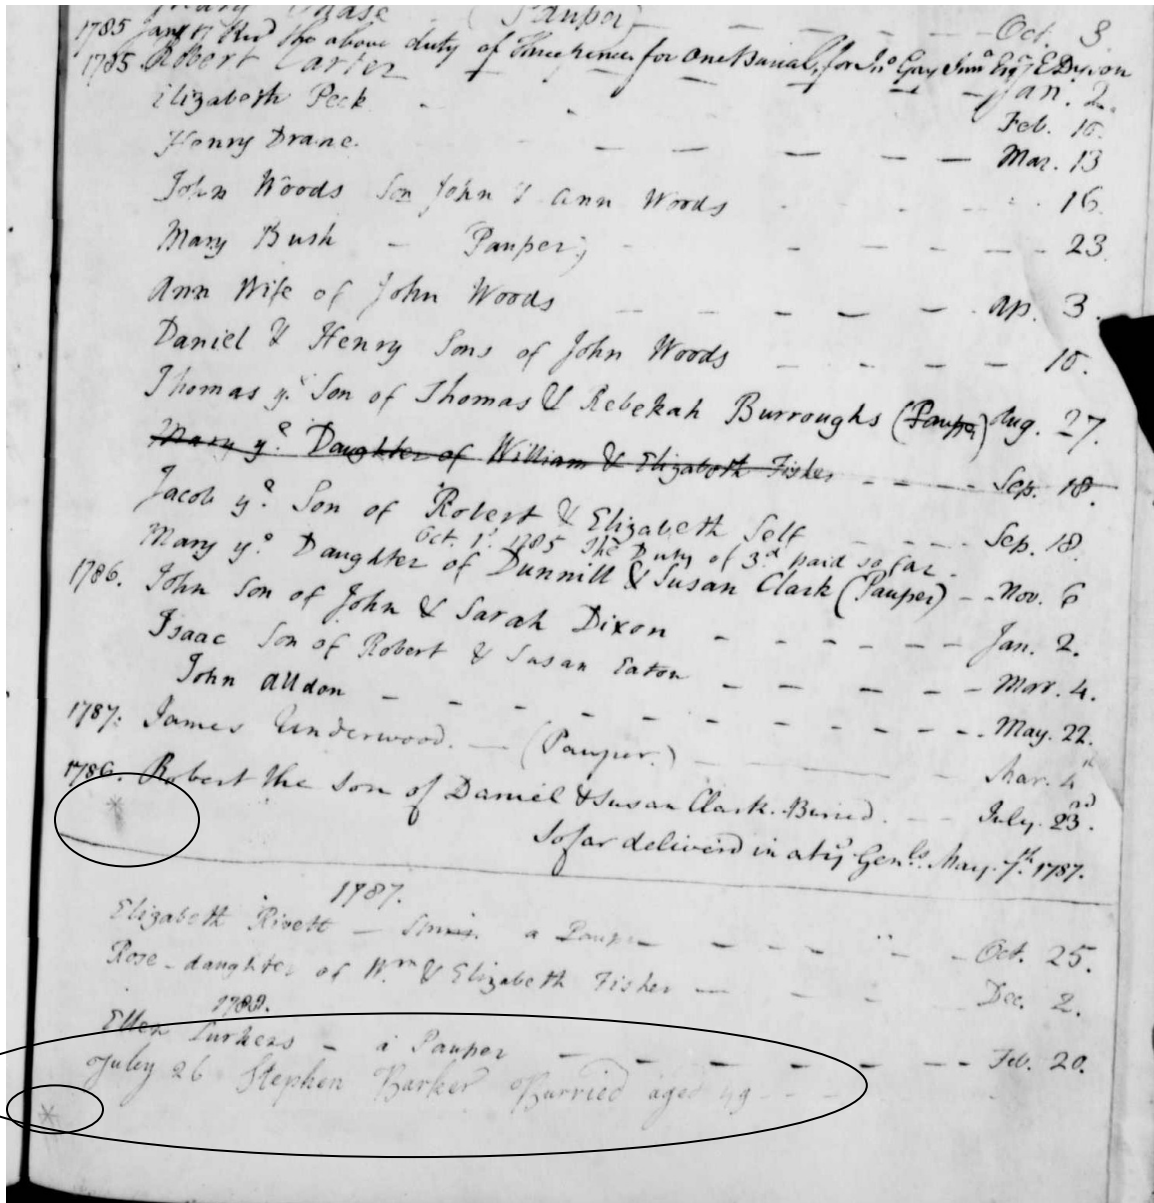 (Pauper) Oct. 3
1785 Jany 17 Rec'd the above duty of threepence for one Burial, for Jno Gay Junr Esqr E Dixon
1785 Robert Carter Jan. 2.
Elizabeth Peck Feb. 10.
Henry Drane. Mar. 13
John Woods Son John & Ann Woods 16.
Mary Bush - Pauper; 23.
Ann Wife of John Woods Ap. 3.
Daniel & Henry Sons of John Woods 10.
Thomas ye Son of Thomas & Rebekah Burroughs (Pauper) Aug. 27.
Mary ye Daughter of William & Elizabeth Fisher Sep. 18.
Jacob ye Son of Robert & Elizabeth Self Sep. 18.
Oct. 1st 1785 The Duty of 3d paid so far.
Mary ye Daughter of Dunnill & Susan Clark (Pauper) Nov. 6
1786. John Son of John & Sarah Dixon Jan. 2.
Isaac Son of Robert & Susan Eaton Mar. 4.
John Alldon May. 22.
1787. James Underwood. (Pauper.) Mar. 4th
1786. Robert the Son of Daniel & Susan Clark. Buried. July. 23rd.
*
So far deliver'd in at ye Genls. May. 7th 1787.
1787.
Elizabeth Rivett a Pauper Oct. 25.
Rose - daughter of Wm & Elizabeth Fisher Dec. 2.
1788.
Ellen Lurkers - a Pauper Feb. 20.
July 26 Stephen Barker Burried aged 49
*